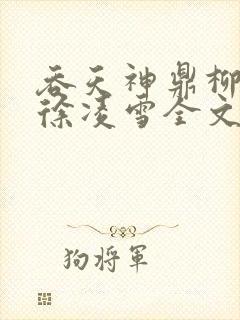 吞天神鼎柳
徐凌雪全文
狗将军